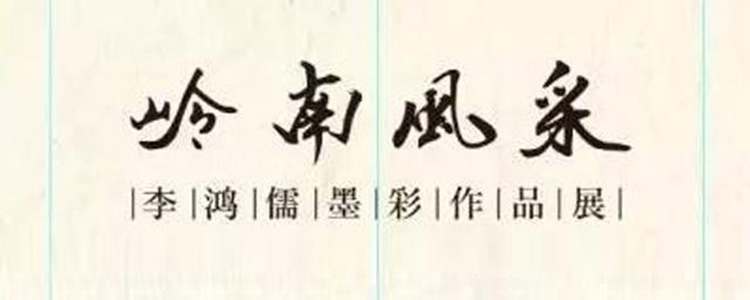 岭南風采
|李|鸿|儒|墨|彩|作|品|展|